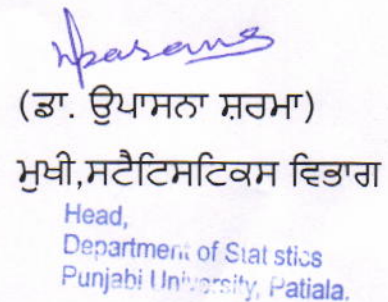 (ਡਾ. ਉਪਾਸਨਾ ਸ਼ਰਮਾ)
ਮੁਖੀ,ਸਟੈਟਿਸਟਿਕਸ ਵਿਭਾਗ
Head,
Department of Statistics
Punjabi University, Patiala.